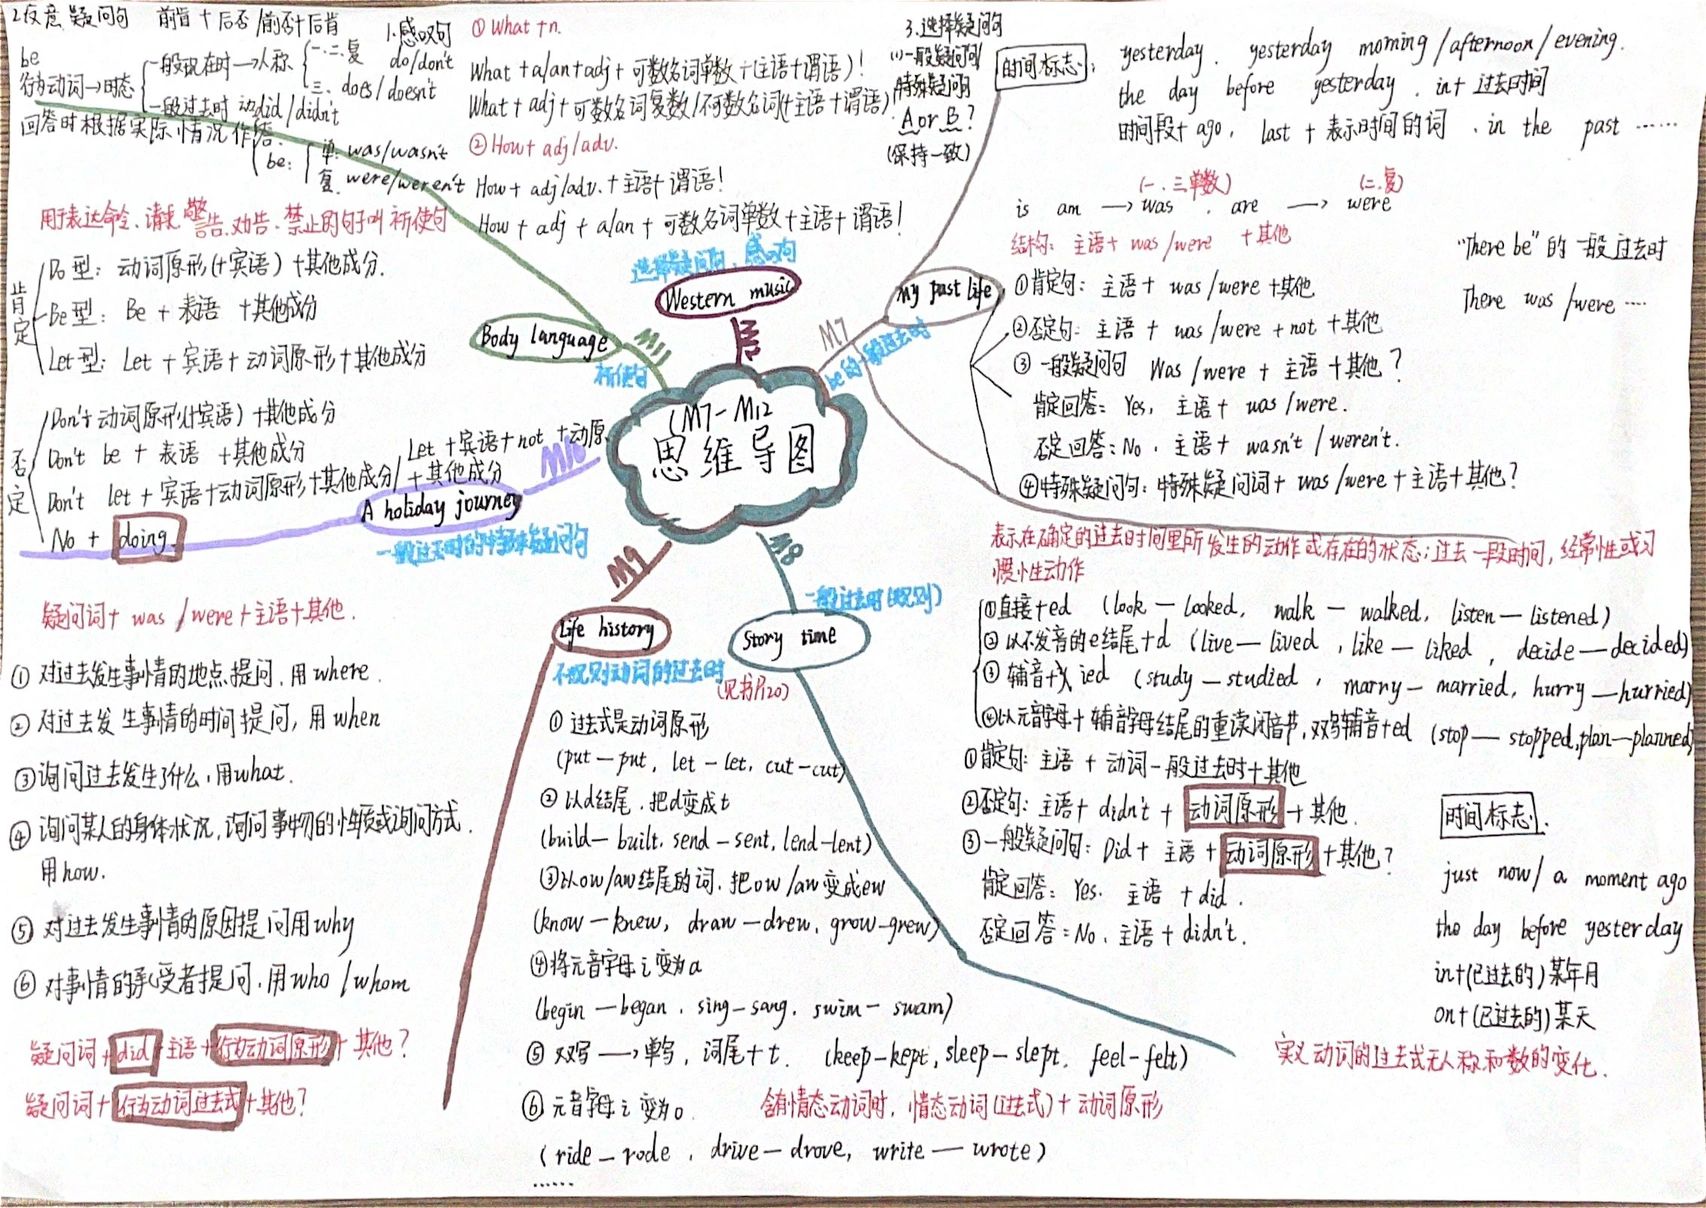 2.反意疑问句 前肯+后否/前否+后肯
be
行为动词→时态
一般现在时→人称
一.二.复 do/don't
三. does/doesn't
一般过去时 动did/didn't
be:
单: was/wasn't
复. were/weren't
回答时根据实际情况作答.
1.感叹句
① What +n.
What +a/an+adj+可数名词单数+(主语+谓语)!
What+adj+可数名词复数/不可数名词(+主语+谓语)!
②How+adj/adv.
How+adj/adv.+主语+谓语!
How+adj+a/an+可数名词单数+主语+谓语!
3.选择疑问句
(1)一般疑问句/
特殊疑问句
A or B?
(保持一致)
选择疑问句、感叹句
Western music
时间标志:
yesterday. yesterday morning/afternoon/evening.
the day before yesterday. in+过去时间
时间段+ago, last+表示时间的词. in the past ……
(一.三单数) (二.复)
is am →was. are → were
结构: 主语+ was/were +其他
①肯定句: 主语+ was/were +其他
②否定句: 主语+ was/were +not +其他
③一般疑问句 Was/were + 主语+其他?
肯定回答: Yes, 主语+ was/were.
否定回答: No, 主语+ wasn't/weren't.
④特殊疑问句: 特殊疑问词+was/were+主语+其他?
"There be"的一般过去时
There was/were ····
My past life
M7
be的一般过去时
用于表达命令、请求、警告、劝告、禁止的句子叫祈使句
肯定
Do型: 动词原形(+宾语)+其他成分.
Be型: Be + 表语 +其他成分
Let型: Let+宾语+动词原形+其他成分
否定
Don't+动词原形(+宾语)+其他成分
Don't be + 表语 +其他成分
Don't let+宾语+动词原形+其他成分/
Let+宾语+not+动原
+其他成分
No + doing
Body language
M11
祈使句
(M7-M12
思维导图
M10
A holiday journey
一般过去时的特殊疑问句
疑问词+ was/were+主语+其他.
① 对过去发生事情的地点提问, 用where.
② 对过去发生事情的时间提问, 用when
③询问过去发生了什么, 用what.
④ 询问某人的身体状况, 询问事物的性质或询问方式.
用how.
⑤ 对过去发生事情的原因提问用why
⑥ 对事情的承受者提问, 用who/whom
疑问词+did+主语+行为动词原形+其他?
疑问词+行为动词过去式+其他?
M9
Life history
不规则动词的过去时
(见书P120)
① 过去式是动词原形
(put—put, let—let, cut—cut)
② 以d结尾, 把d变成t
(build—built, send—sent, lend-lent)
③以ow/aw结尾的词, 把ow/aw变成ew
(know—knew, draw—drew, grow-grew)
④将元音字母i变为a
(begin—began, sing—sang, swim—swam)
⑤ 双写→单写, 词尾+t. (keep-kept, sleep-slept, feel-felt)
⑥ 元音字母i变为o.
(ride—rode, drive—drove, write—wrote)
······
含有情态动词时, 情态动词(过去式)+动词原形
M8
Story time
一般过去时(规则)
表示在确定的过去时间里所发生的动作或存在的状态; 过去一段时间, 经常性或习
惯性动作
①直接+ed (look—looked, walk—walked, listen—listened)
②以不发音的e结尾+d (live—lived, like—liked, decide—decided)
③辅音+y ied (study—studied, marry—married, hurry—hurried)
④以元音字母+辅音字母结尾的重读闭音节, 双写辅音+ed (stop—stopped, plan—planned)
①肯定句: 主语+动词一般过去时+其他
②否定句: 主语+didn't+动词原形+其他.
③一般疑问句: Did+主语+动词原形+其他?
肯定回答: Yes. 主语+did.
否定回答: No, 主语+didn't.
时间标志.
just now/a moment ago
the day before yesterday
in+(已过去的)某年月
on+(已过去的)某天
实义动词的过去式无人称和数的变化.